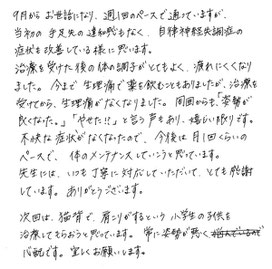 9月からお世話になり、週1回のペースで通っていますが、
当初の手足先の違和感もなく、自律神経失調症の
症状も改善している様に思います。
治療を受けた後の体の調子がとてもよく、疲れにくくなり
ました。今まで生理痛で薬を飲むこともありましたが、治療を
受けてから、生理痛がなくなりました。周囲からも「姿勢が
良くなった。」「やせた!?」と言う声もあり、嬉しい限りです。
不快な症状がなくなったので、今後は月1回くらいの
ペースで、体のメンテナンスしていこうと思っています。
先生には、いつも丁寧に対応していただいて、とても感謝
しています。ありがとうございます。
次回は、猫背で、肩こりがするという小学生の子供を
治療してもらおうと思っています。常に姿勢が悪く
心配です。宜しくお願いします。